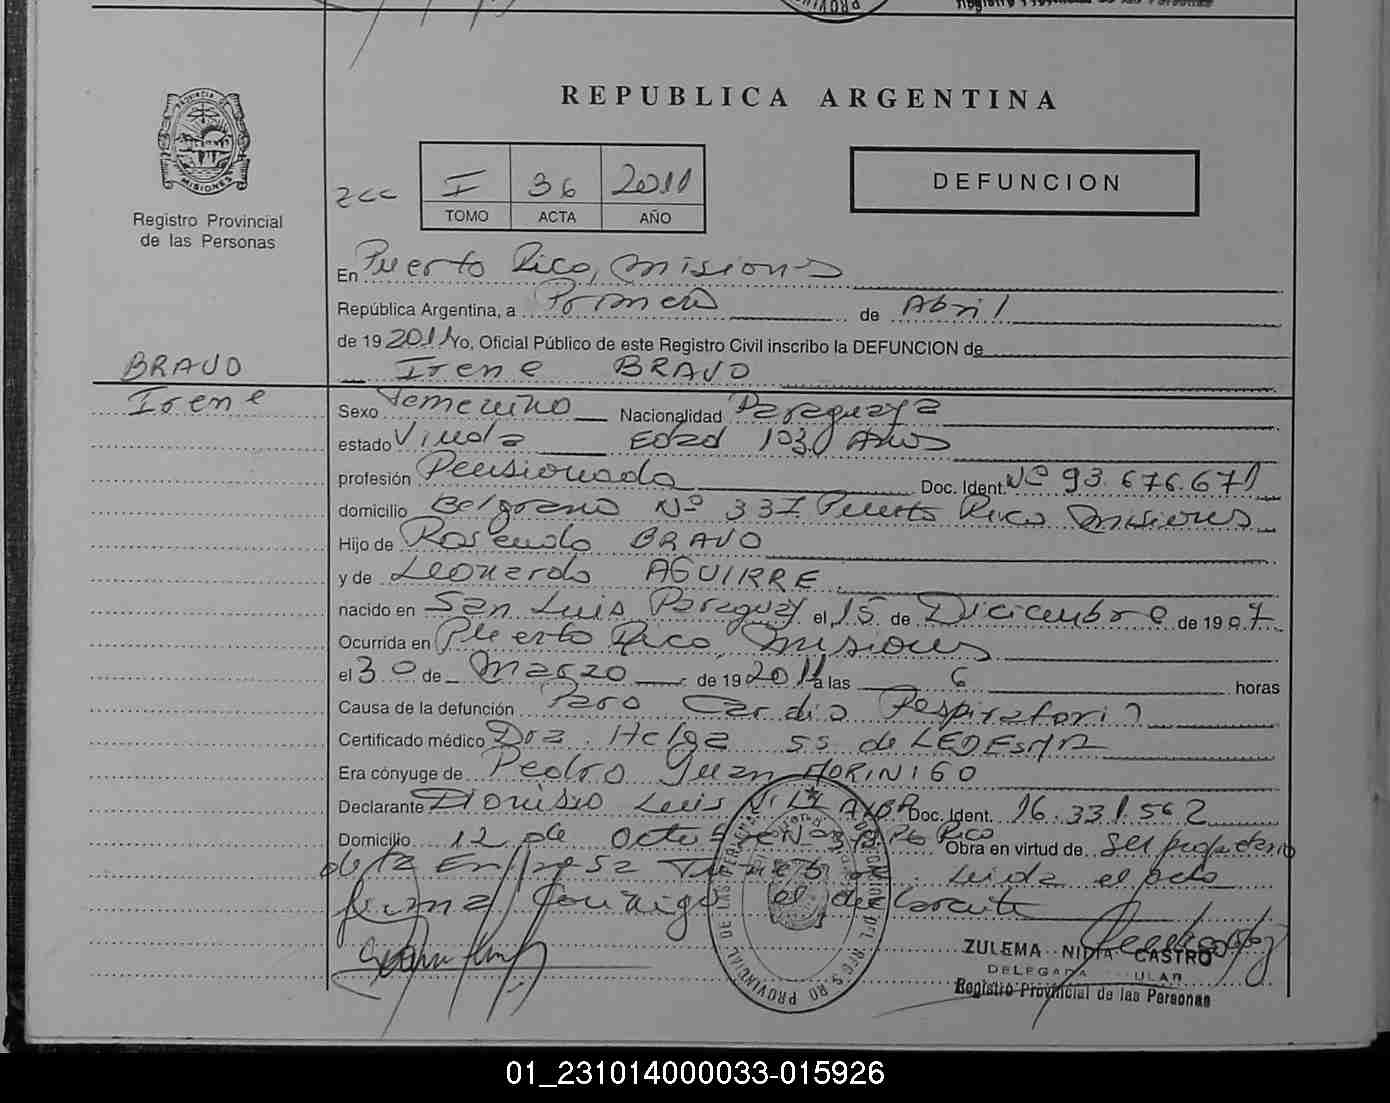 REPUBLICA ARGENTINA
PROVINCIA DE
MISIONES
Registro Provincial
de las Personas
zcc
I 36 2011
TOMO ACTA AÑO
DEFUNCION
En Puerto Rico, Misiones
República Argentina, a Primero de Abril
de 19 2011 Yo, Oficial Público de este Registro Civil inscribo la DEFUNCION de
BRAVO
Irene
Irene BRAVO
Sexo Femenino Nacionalidad Paraguaya
estado Viuda Edad 103 Años
profesión Pensionada Doc. Ident. Nº 93.676.671
domicilio Belgrano Nº 337 Puerto Rico Misiones
Hijo de Rosendo BRAVO
y de Leonarda AGUIRRE
nacido en San Luis Paraguay el 15 de Diciembre de 19 07
Ocurrida en Puerto Rico, Misiones
el 30 de Marzo de 19 2011 a las 6 horas
Causa de la defunción Paro Cardio Respiratorio
Certificado médico Dra. Helga SS de LEDESMA
Era cónyuge de Pedro Juan MORINIGO
Declarante Dionisio Luis VILLALBA Doc. Ident. 16.331.562
Domicilio 12 de Octubre Nº Pto Rico Obra en virtud de Ser propietario
de la Empresa Leida el acta
firma conmigo el declarante
ZULEMA NIDIA CASTRO
DELEGADA TITULAR
Registro Provincial de las Personas
01_231014000033-015926